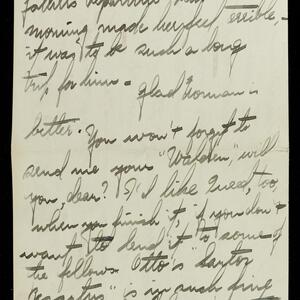 father's departure
morning made her feel terrible, –
it was to be such a long
trip for him – glad Norman is
better. You won't forget to
send me your "Walden," will
you, dear? I'd like Tweed, too,
when you finish it, if you don't
want to lend it to some of
the fellows. Otto's "Sartor
Resartus" is in such fine